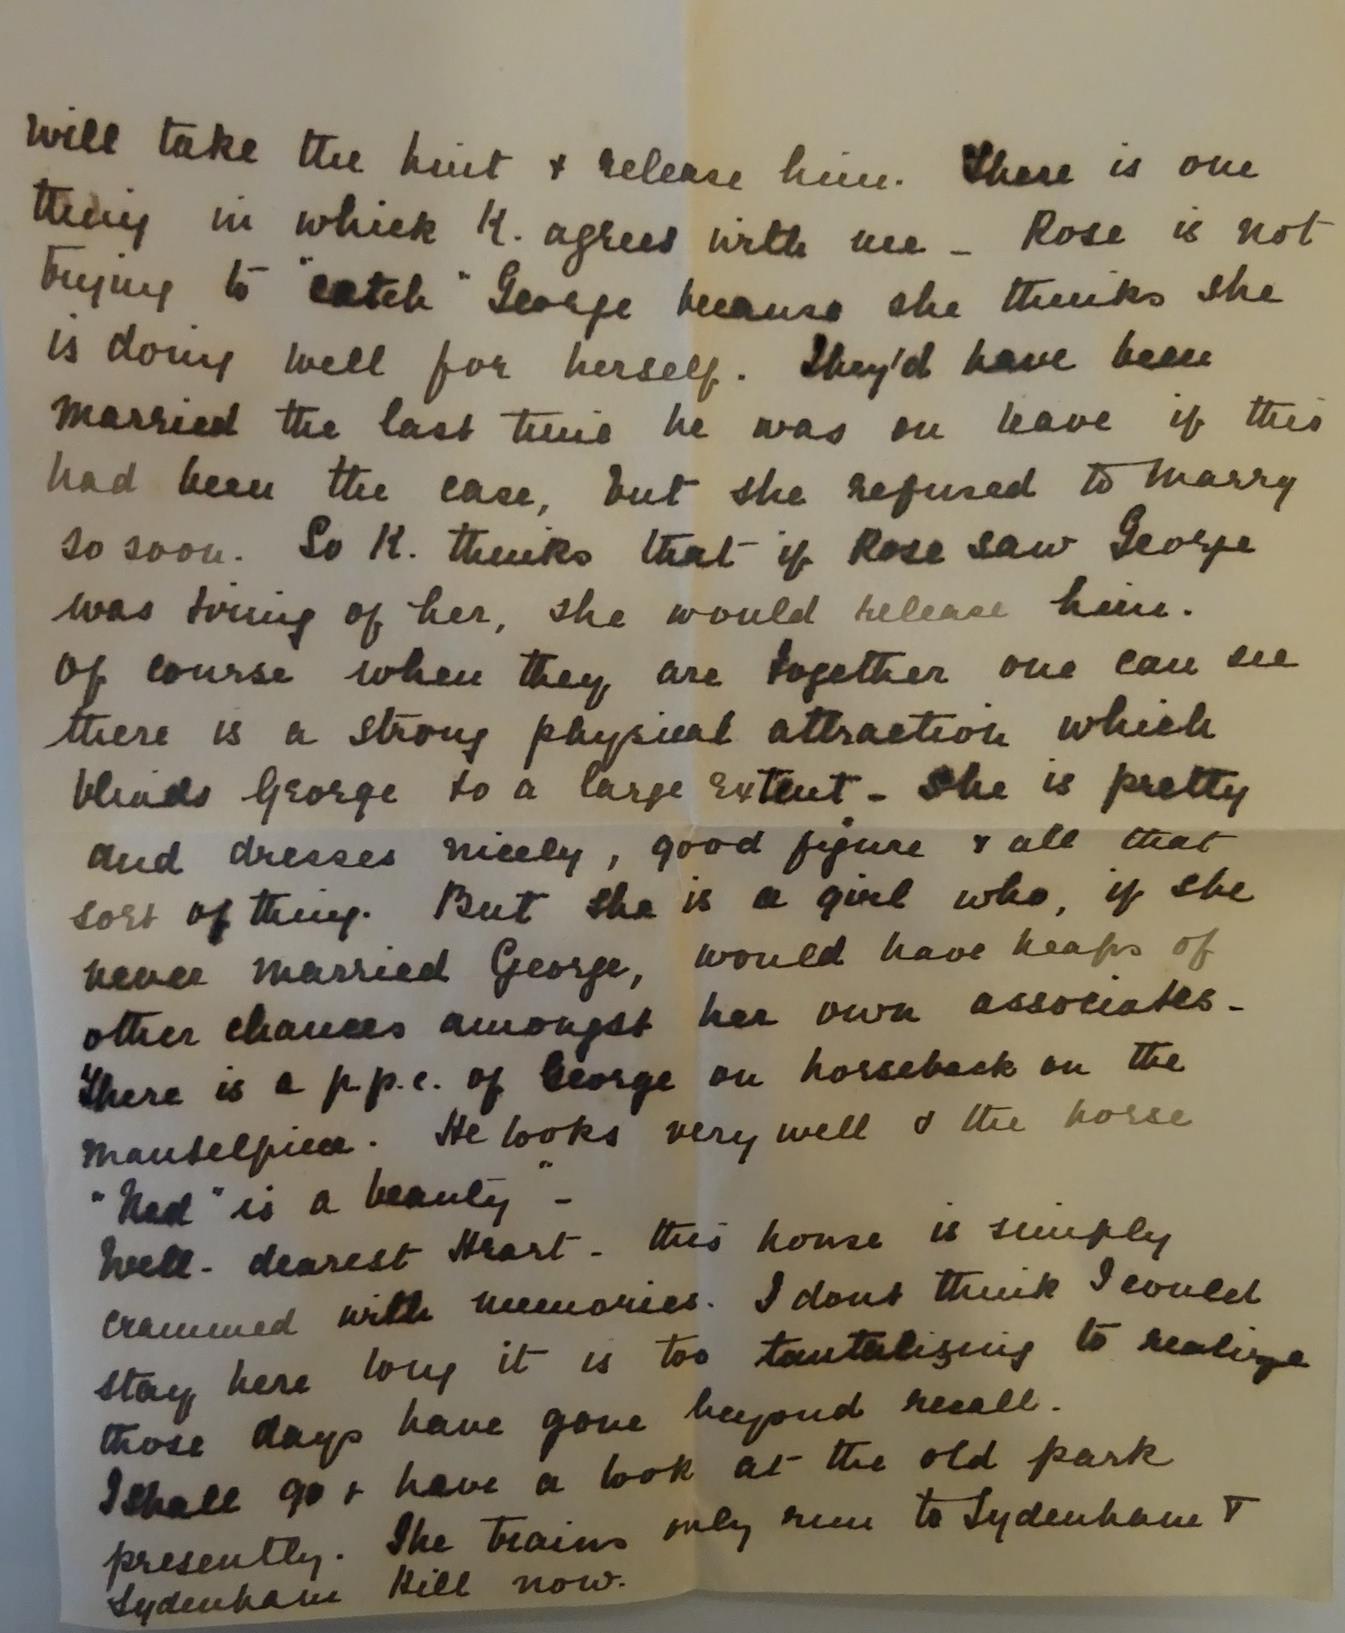 will take the hint & release him. There is one
thing in which K. agrees with me - Rose is not
trying to "catch" George because she thinks she
is doing well for herself. They'd have been
married the last time he was on leave if this
had been the case, but she refused to marry
so soon. So K. thinks that if Rose saw George
was tiring of her, she would release him.
Of course when they are together one can see
there is a strong physical attraction which
blinds George to a large extent - She is pretty
and dresses nicely, good figure & all that
sort of thing. But she is a girl who, if she
never married George, would have heaps of
other chances amongst her own associates -
There is a p.p.c. of George on horseback on the
mantelpiece. He looks very well & the horse
"Ned" is a beauty" -
Well - dearest Heart - this house is simply
crammed with memories. I dont think I could
stay here long it is too tantalizing to realize
those days have gone beyond recall.
I shall go & have a look at the old park
presently. The trains only run to Sydenham &
Sydenham Hill now.